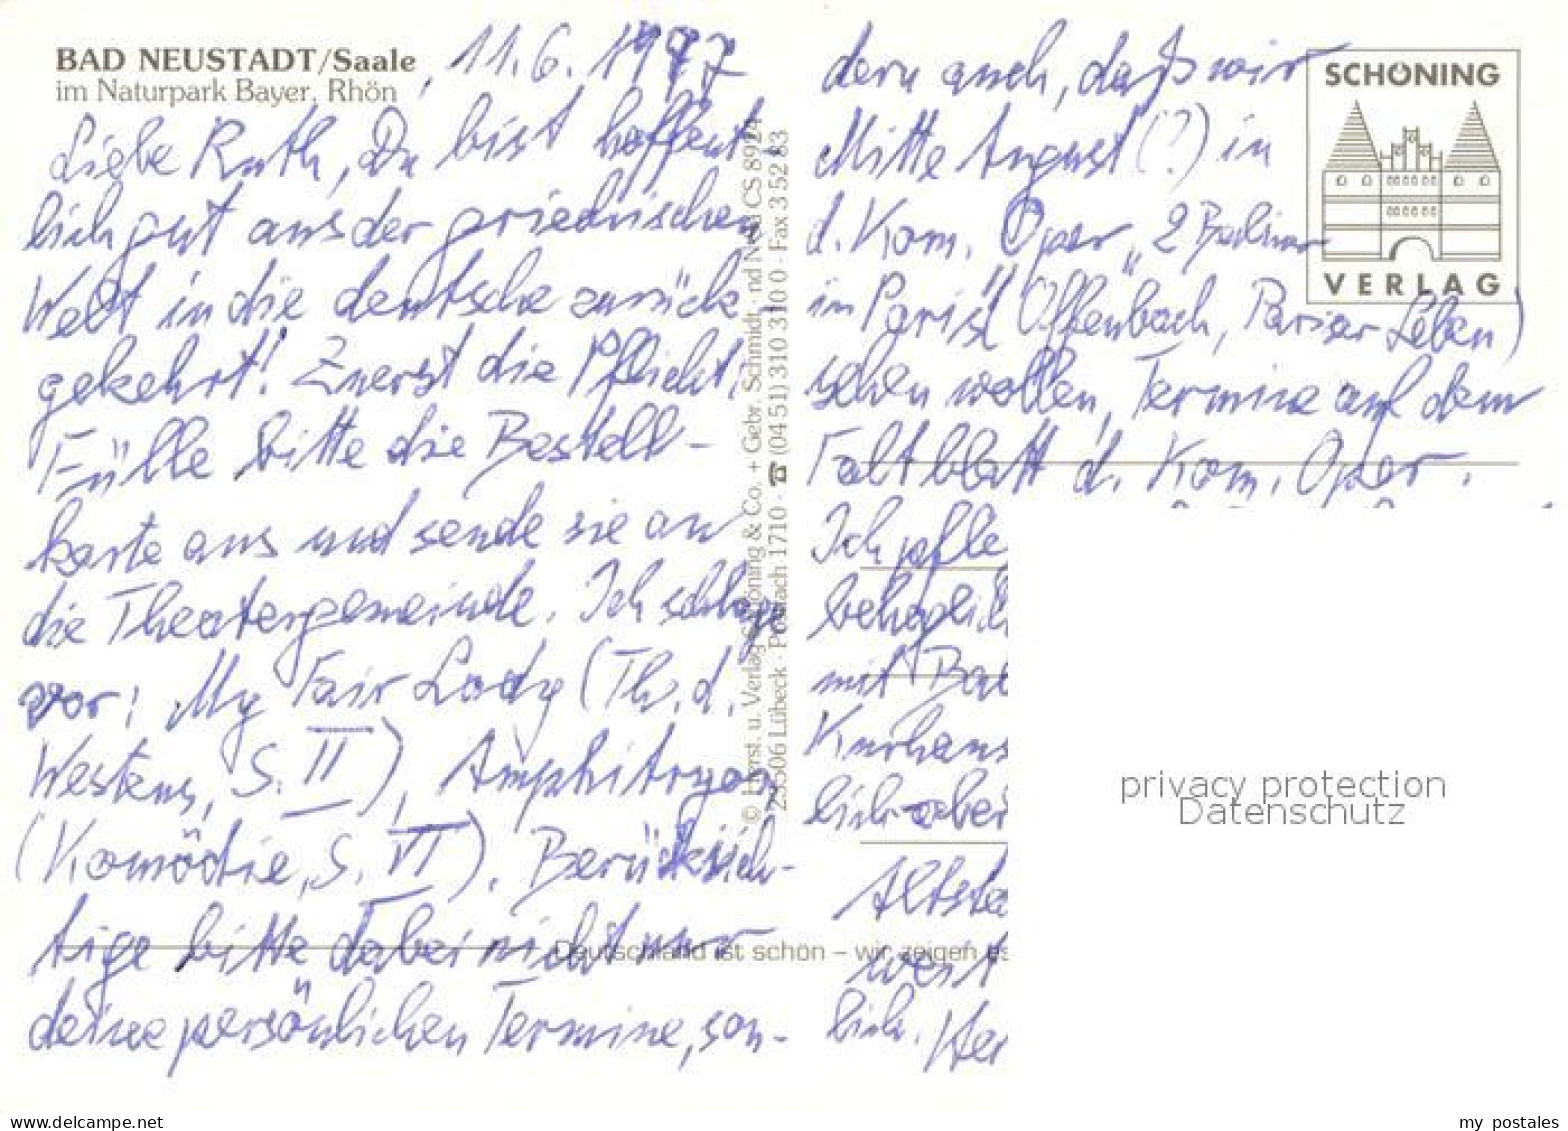 BAD NEUSTADT/Saale
im Naturpark Bayer. Rhön
, 11.6.1997
Liebe Ruth, Du bist hoffent
lich gut aus der griechischen
Welt in die deutsche zurück
gekehrt! Zuerst die Pflicht:
Fülle bitte die Bestell-
karte aus und sende sie an
die Theatergemeinde. Ich schlage
vor: My Fair Lady (Th. d.
Westens, S. II), Amphitryon
(Komödie, S. VI). Berücksich-
tige bitte dabei nicht nur
deine persönlichen Termine, son-
dern auch, daß wir
Mitte August (?) in
d. Kom. Oper „2 Berliner
in Paris" (Offenbach, Pariser Leben)
sehen wollen, Termine auf dem
Faltblatt d. Kom. Oper.
Ich pfle
behaglic
mit Ba
Kurhaus
lich aber
Altsta
wert
lich. Her
© Herst. u. Verlag Schöning & Co. + Gebr. Schmidt
23506 Lübeck · Postfach 1710 · ☎ (04 51) 310 310 0 · Fax 3 52 83
Deutschland ist schön – wir zeigen es
SCHÖNING
VERLAG
privacy protection
Datenschutz
www.delcampe.net
my_postales